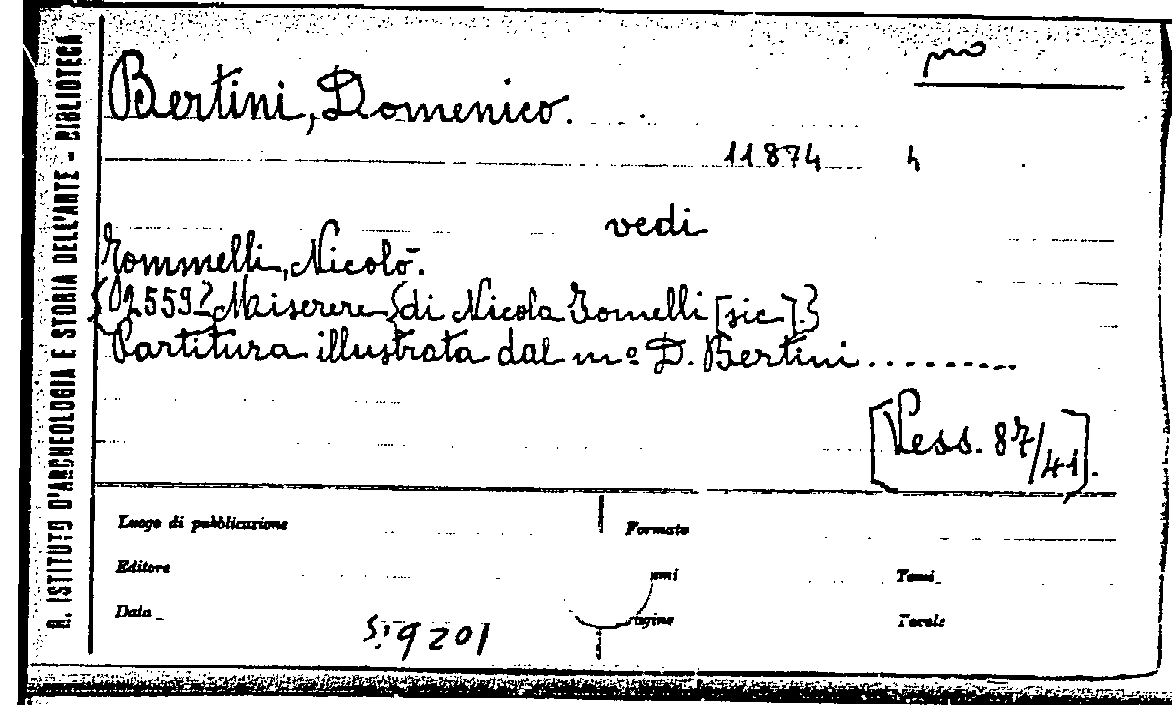 R. ISTITUTO D'ARCHEOLOGIA E STORIA DELL'ARTE - BIBLIOTECA
Bertini, Domenico.
11874 h
vedi
Jommelli, Nicolò.
Miserere {di Nicola Jomelli [sic].}
Partitura illustrata dal mº D. Bertini.........
[Vess. 87/41].
Luogo di pubblicazione Formato
Editore Tomi
Data Tavole